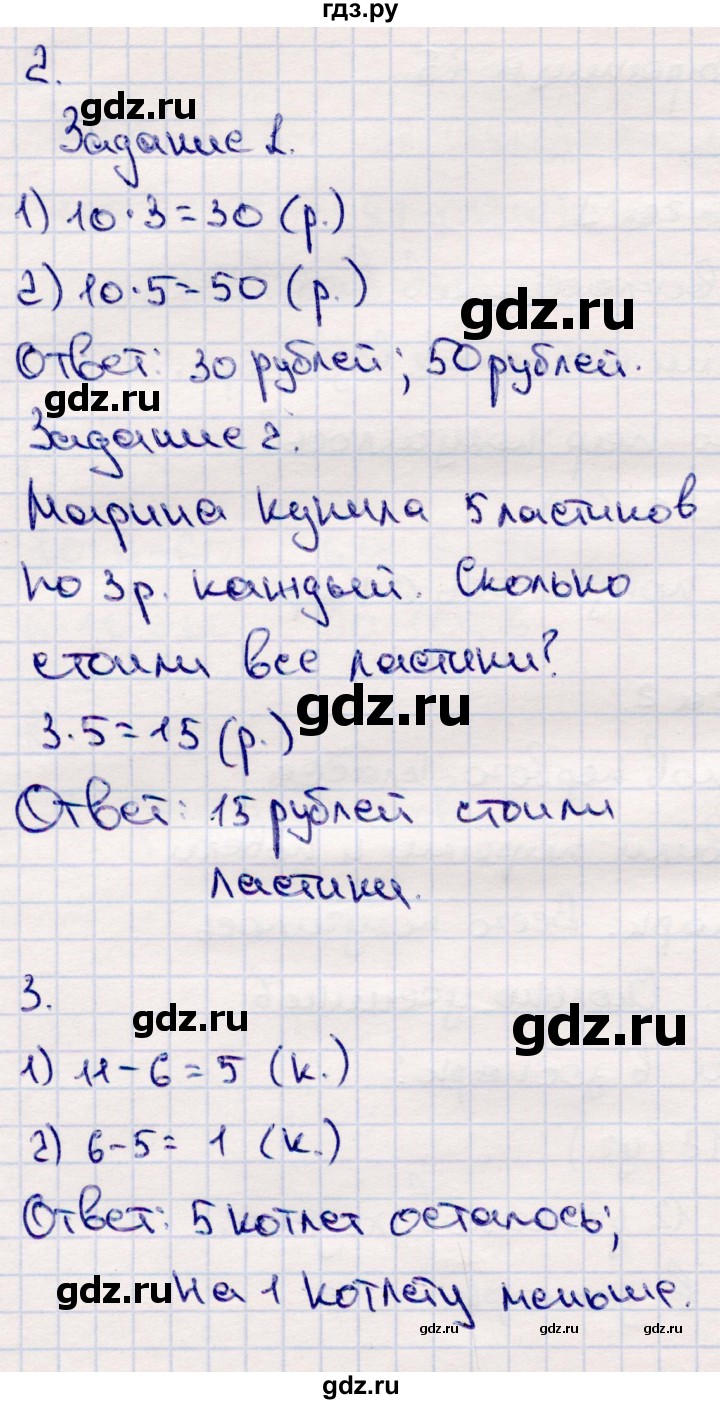 гдз.ру
2.
gdz.ru
Задание 1.
1) 10·3=30 (р.)
2) 10·5=50 (р.)
gdz.ru
Ответ: 30 рублей; 50 рублей.
gdz.ru
Задание 2.
Марина купила 5 ластиков
по 3 р. каждый. Сколько
стоили все ластики?
gdz.ru
3·5=15 (р.)
Ответ: 15 рублей стоили
ластики.
3.
gdz.ru
gdz.ru
1) 11-6=5 (к.)
2) 6-5= 1 (к.)
Ответ: 5 котлет осталось;
gdz.ru
на 1 котлету меньше.
gdz.ru gdz.ru gdz.ru
gdz.ru